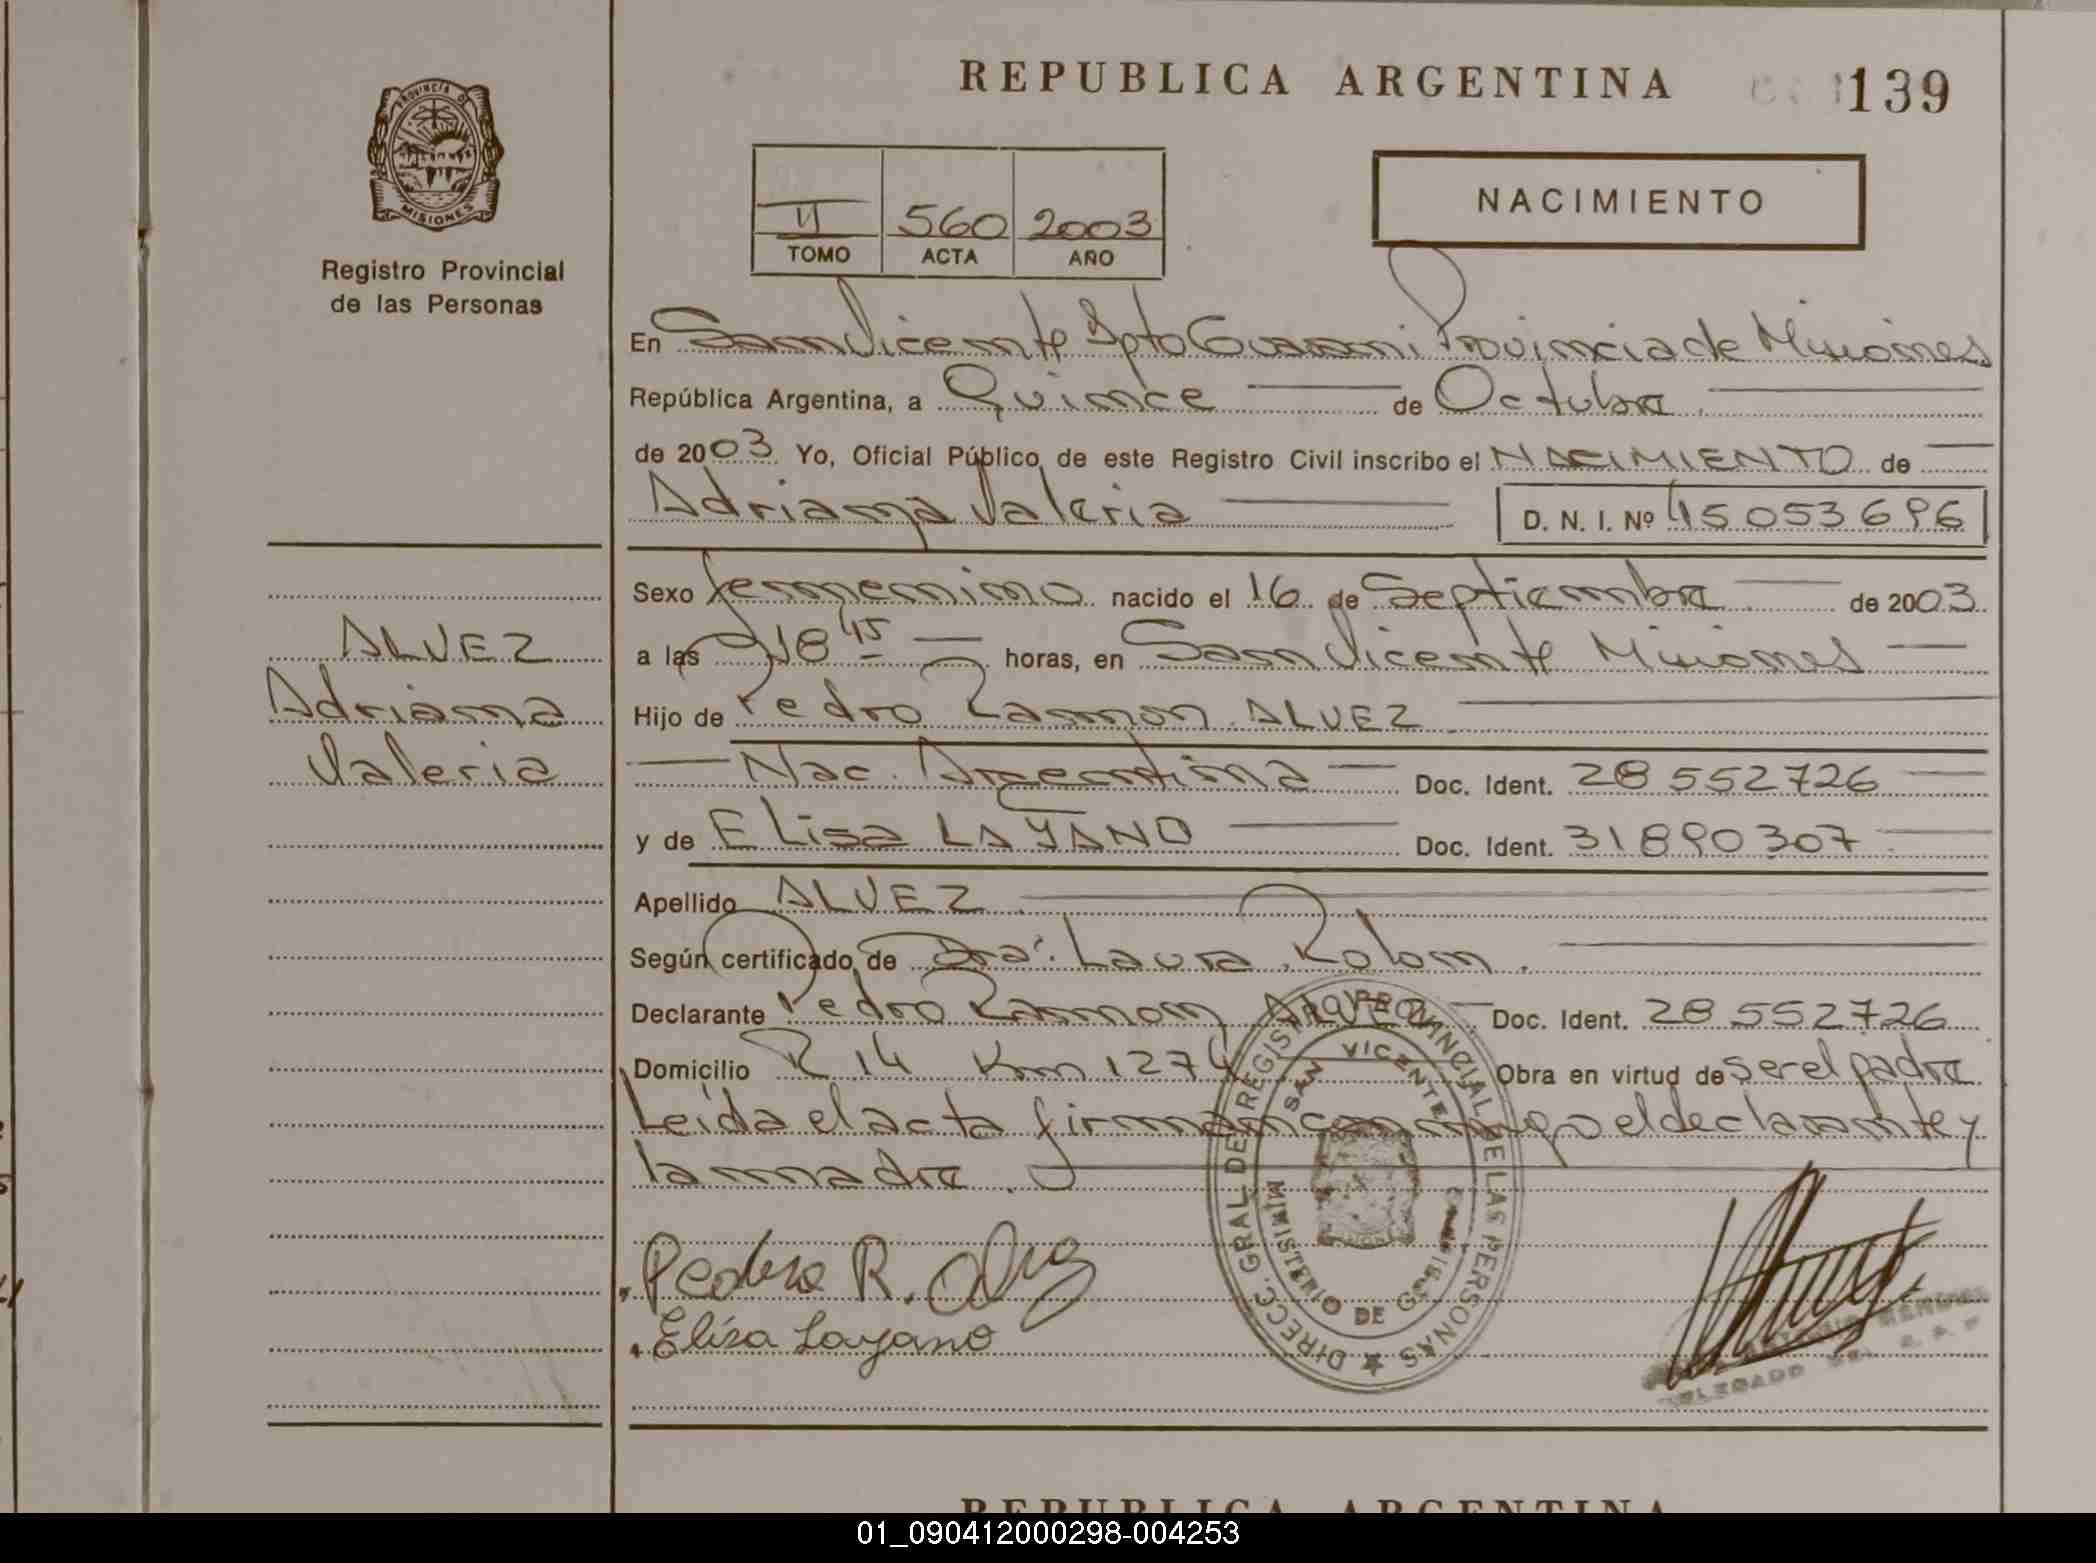 PROVINCIA DE
MISIONES
Registro Provincial
de las Personas
ALVEZ
Adriana
Valeria
REPUBLICA ARGENTINA
139
II 560 2003
TOMO ACTA AÑO
NACIMIENTO
En San Vicente Dpto Guarani Provincia de Misiones
República Argentina, a Quince de Octubre
de 2003 Yo, Oficial Público de este Registro Civil inscribo el NACIMIENTO de
Adriana Valeria D. N. I. Nº 45053696
Sexo femenino nacido el 16 de Septiembre de 2003
a las 18 45 horas, en San Vicente Misiones
Hijo de Pedro Ramon ALVEZ
Nac. Argentina Doc. Ident. 28552726
y de Elisa LAYANO Doc. Ident. 31890307
Apellido ALVEZ
Según certificado de Dra. Laura Rolon
Declarante Pedro Ramon ALVEZ Doc. Ident. 28552726
Domicilio R 14 Km 1274 Obra en virtud de ser el padre
Leída el acta firman conmigo el declarante y
la madre.
DIRECC. GRAL DE REGISTRO PROVINCIAL DE LAS PERSONAS
SAN VICENTE
MINISTERIO DE
Pedro R. Alvez
Elisa Layano
DELEGADO
REPUBLICA ARGENTINA
01_090412000298-004253